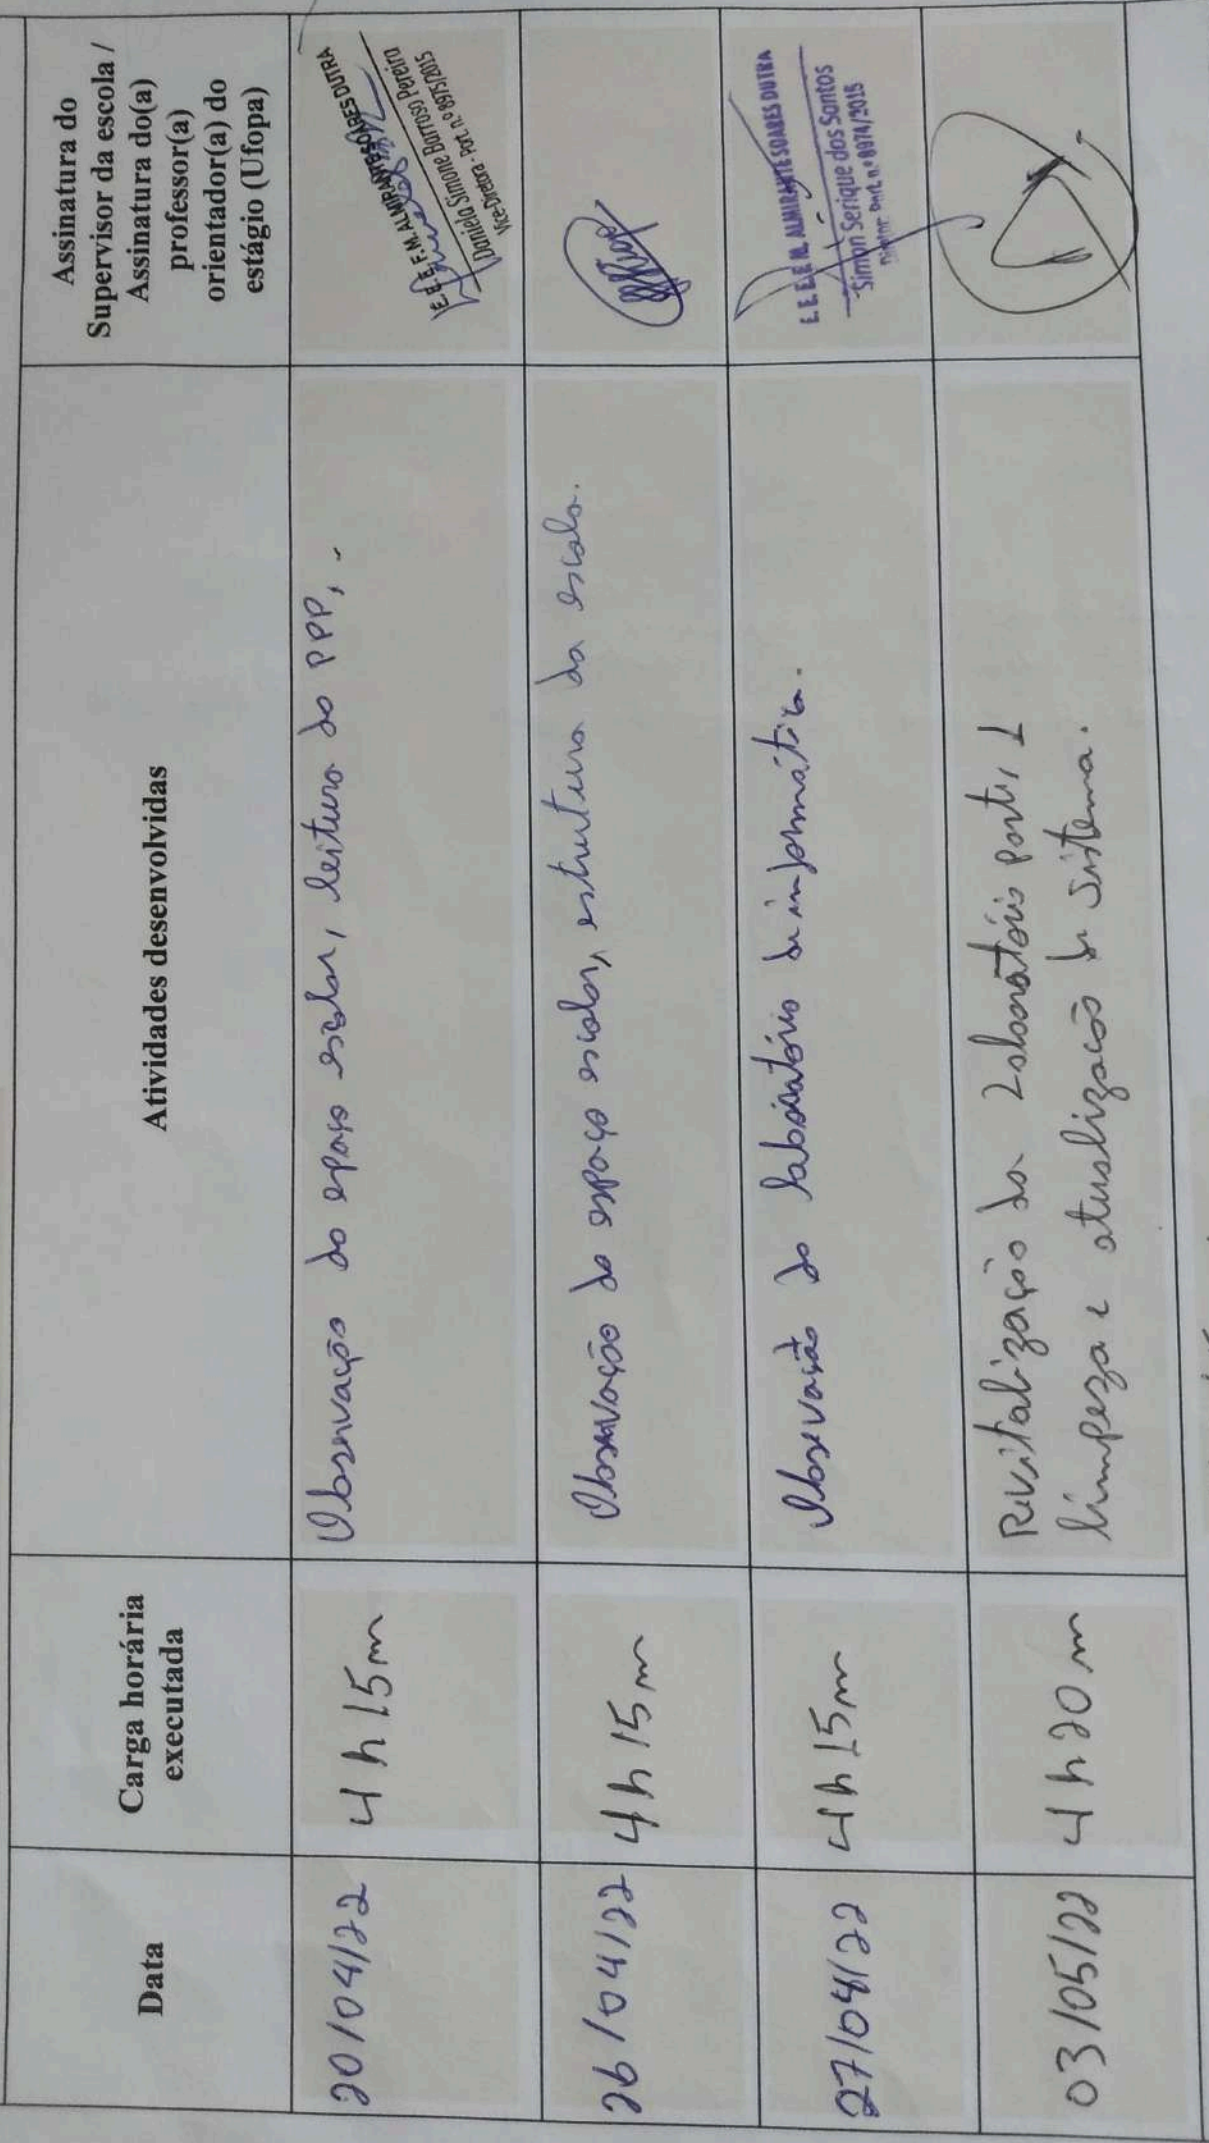 Data
Carga horária
executada
Atividades desenvolvidas
Assinatura do
Supervisor da escola /
Assinatura do(a)
professor(a)
orientador(a) do
estágio (Ufopa)
20/04/22
4h15m
Observação do espaço escolar, leitura do PPP, -
E.E.E.F.M. ALMIRANTE SOARES DUTRA
Daniela Simone Burroso Pereira
Vice-Diretora - Port. n.º 8975/2015
26/04/22
4h15m
Observação do espaço escolar, estrutura da escola.
27/04/22
4h15m
Observação do laboratório de informática.
E.E.E.F.M. ALMIRANTE SOARES DUTRA
Simon Serique dos Santos
Diretor Port. n.º 8974/2015
03/05/22
4h20m
Revitalização do Laboratório part, 1
limpeza e atualização de sistema.